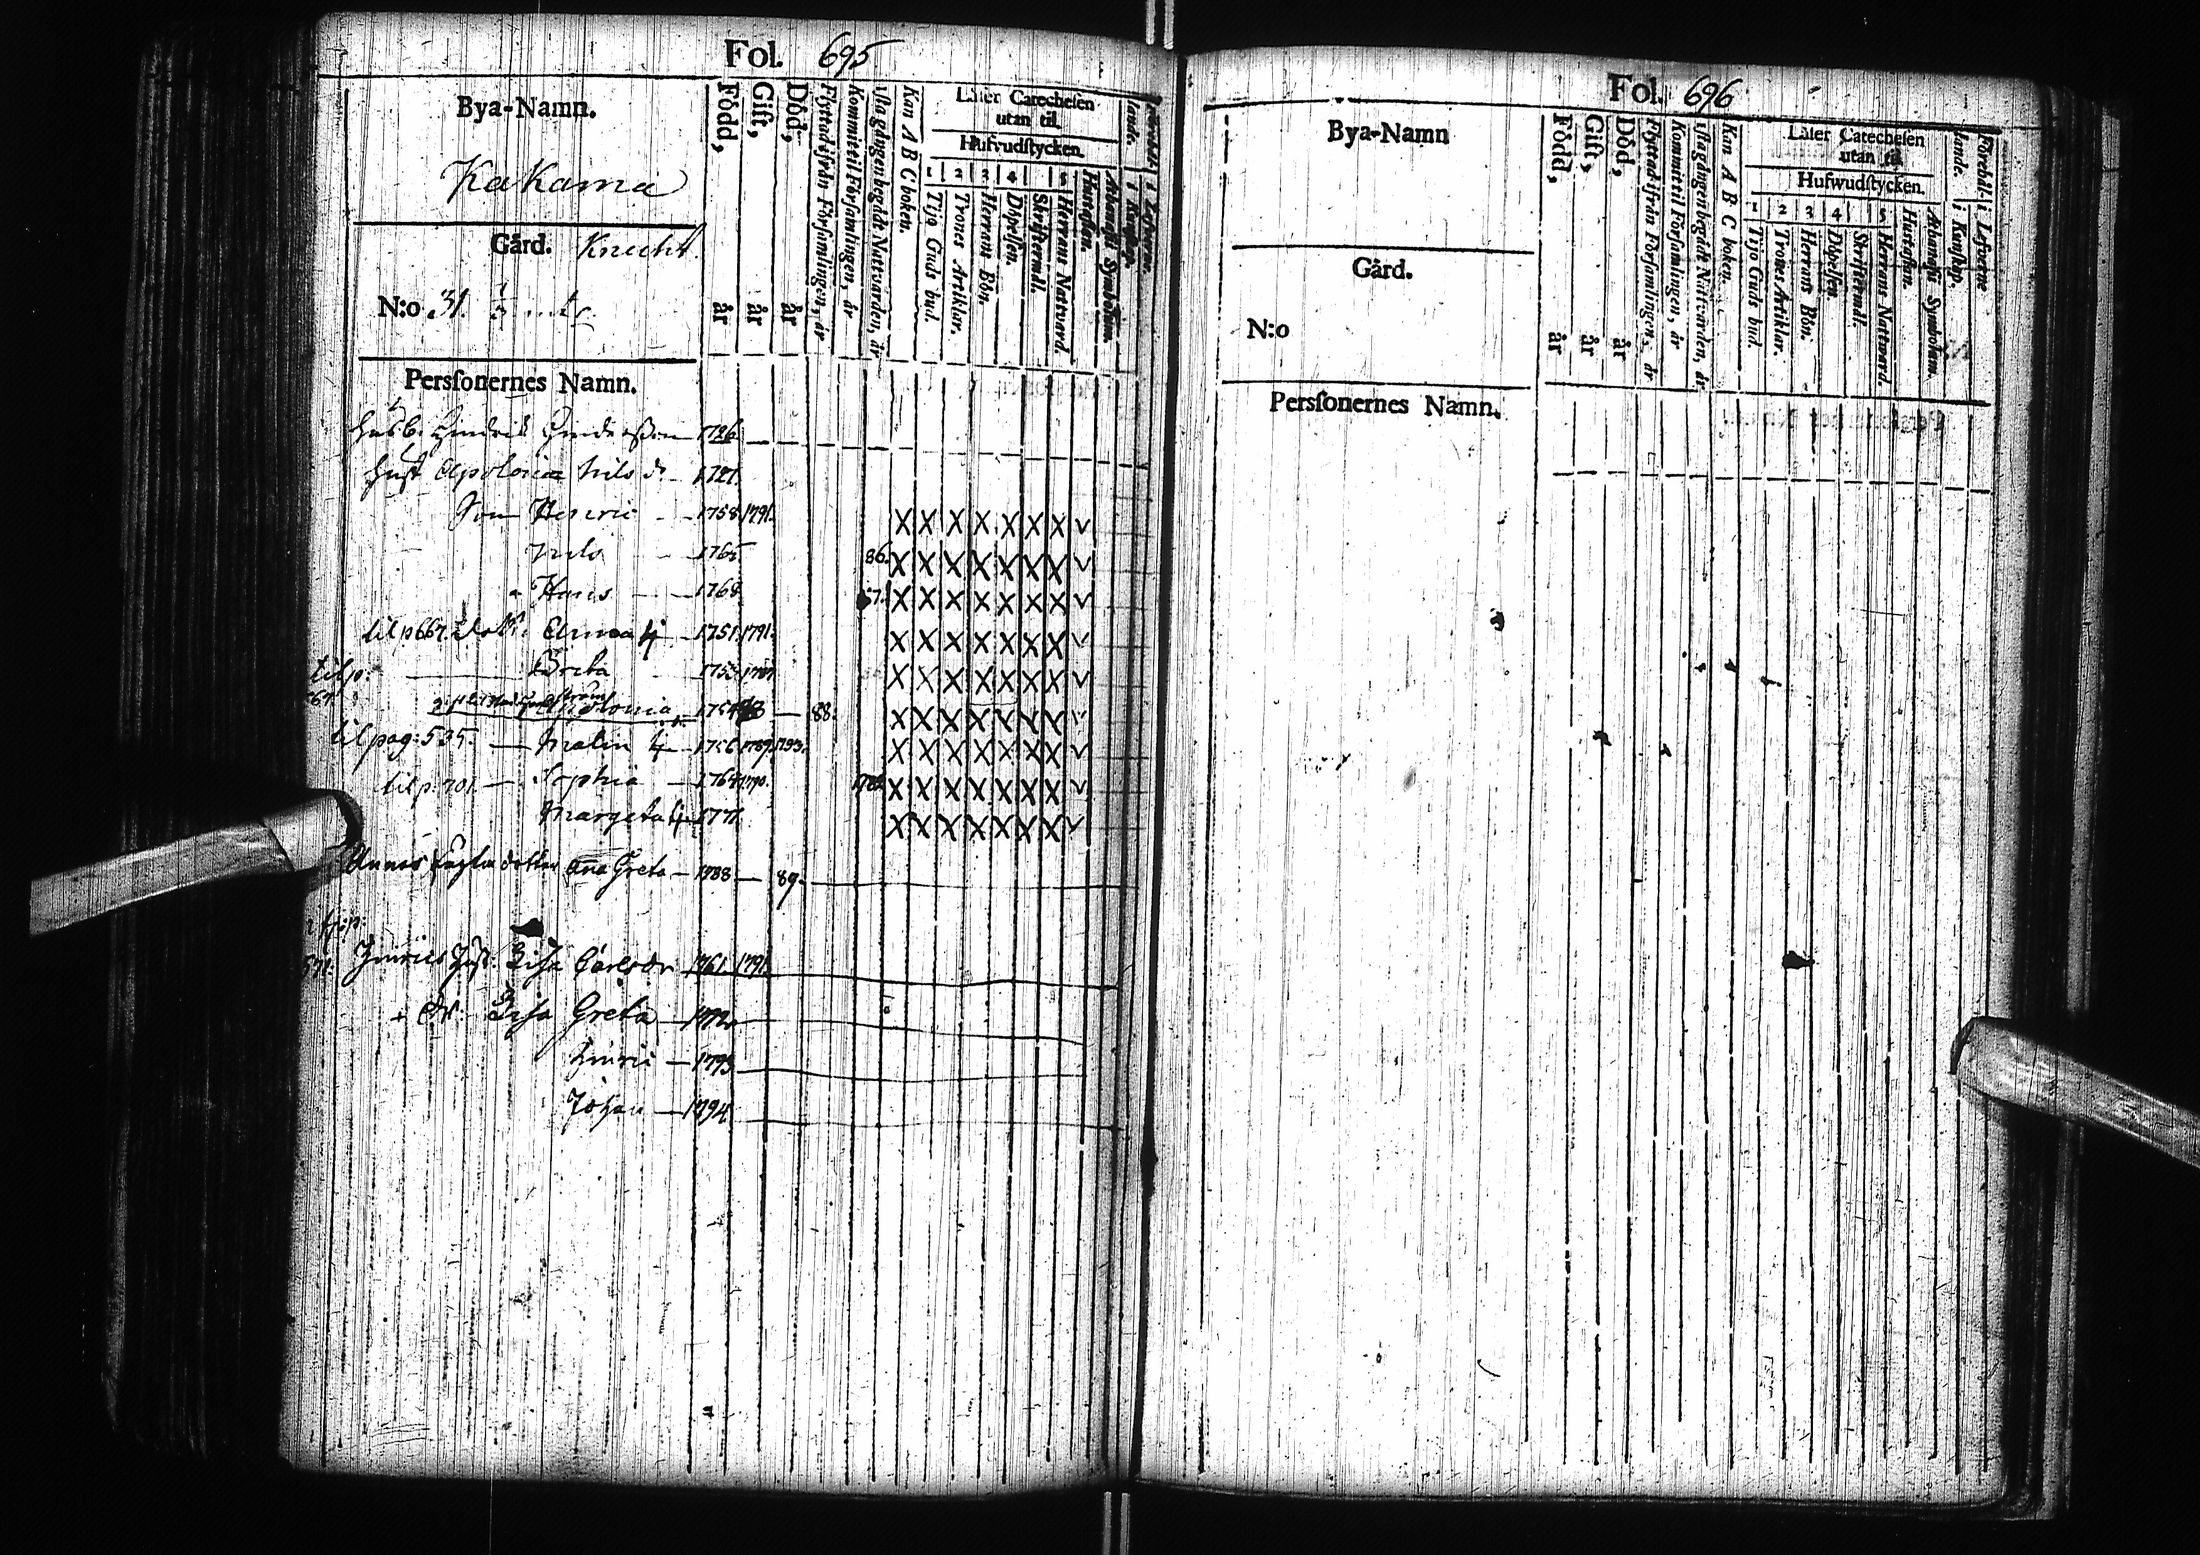 Fol. 695
Bya-Namn.
KaKama
Gård. Knecht.
N:o 31.
Född, år
Gift, år
Död, år
Flyttad ifrån Församlingen, år
Kommit til Församlingen, år
Först gången begådt Nattvarden, år
Kan A B C boken.
Läser Catechesen
utan til.
Hufvudstycken.
1 2 3 4 5
Tijo Guds bud.
Trones Artiklar.
Herrans Bön.
Döpelsen.
Skriftermål.
Herrans Nattvard.
Hustaflan.
Athanasii Symbolum.
Personernes Namn.
Husb. Hindrik Hindersson 1726.
Hust Apolonia Nils dr 1727.
Son Henric 1758 1791.
Nils 1765 86.
Hans 1768 87.
til p 667. Dott: Anna 1751. 1791.
til p: Greta 1753
67.
Apolonia 88.
til pag: 535. Malin 1756. 1789. 1793.
til p. 701 Sophia 1764 1790.
Margeta 1771
Annas dotter Ana Greta 1788 89.
571. Hinrics Hust. Lisa Carlsdr 1761. 1791.
dr. Lisa Greta 1792.
Hinric 1793
Johan 1794
Fol. 696
Bya-Namn
Gård.
N:o
Född, år
Gift, år
Död, år
Flyttad ifrån Församlingen, år
Kommit til Församlingen, år
Först gången begådt Nattvarden, år
Kan A B C boken.
Läser Catechesen
utan til
Hufwudstycken.
1 2 3 4 5
Tijo Guds bud.
Trones Artiklar.
Herrans Bön.
Döpelsen.
Skriftermål.
Herrans Nattvard.
Hustaflan.
Athanasii Symbolum.
Förehål-
lande.
i Kunskap.
i Lefverne
Personernes Namn.